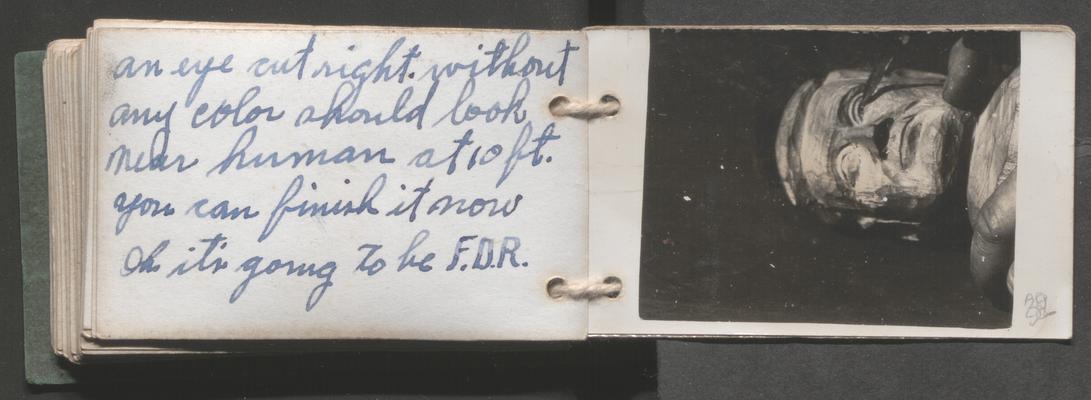 an eye cut right. without
any color should look
near human at 10 ft.
you can finish it now
Oh it's going to be F.D.R.